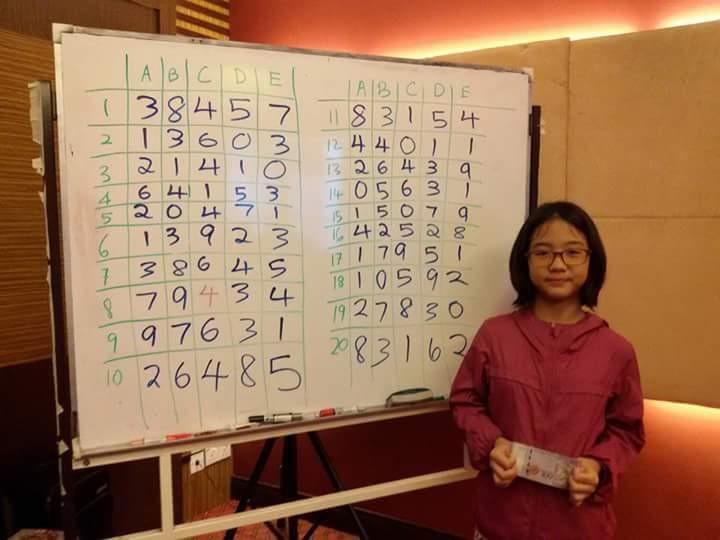 A B C D E
1 3 8 4 5 7
2 1 3 6 0 3
3 2 1 4 1 0
4 6 4 1 5 3
5 2 0 4 7 1
6 1 3 9 2 3
7 3 8 6 4 5
8 7 9 4 3 4
9 9 7 6 3 1
10 2 6 4 8 5
A B C D E
11 8 3 1 5 4
12 4 4 0 1 1
13 2 6 4 3 9
14 0 5 6 3 1
15 1 5 0 7 9
16 4 2 5 2 8
17 1 7 9 5 1
18 1 0 5 9 2
19 2 7 8 3 0
20 8 3 1 6 2